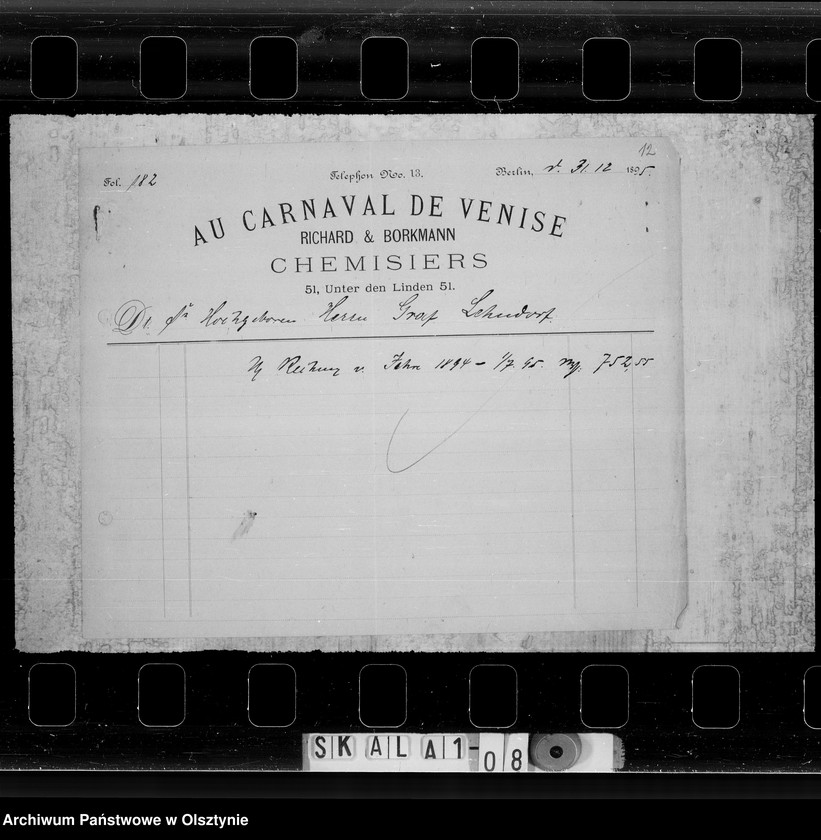 12
Fol. 182 Telephon No. 13. Berlin, d. 31. 12 1895.
AU CARNAVAL DE VENISE
RICHARD & BORKMANN
CHEMISIERS
51, Unter den Linden 51.
Dt. Sr Hochgeboren Herrn Graf Lehndorf.
Rechnung v. Jahre 1894 – 1/7. 95. M. 752,50
SKALA 1-08
Archiwum Państwowe w Olsztynie